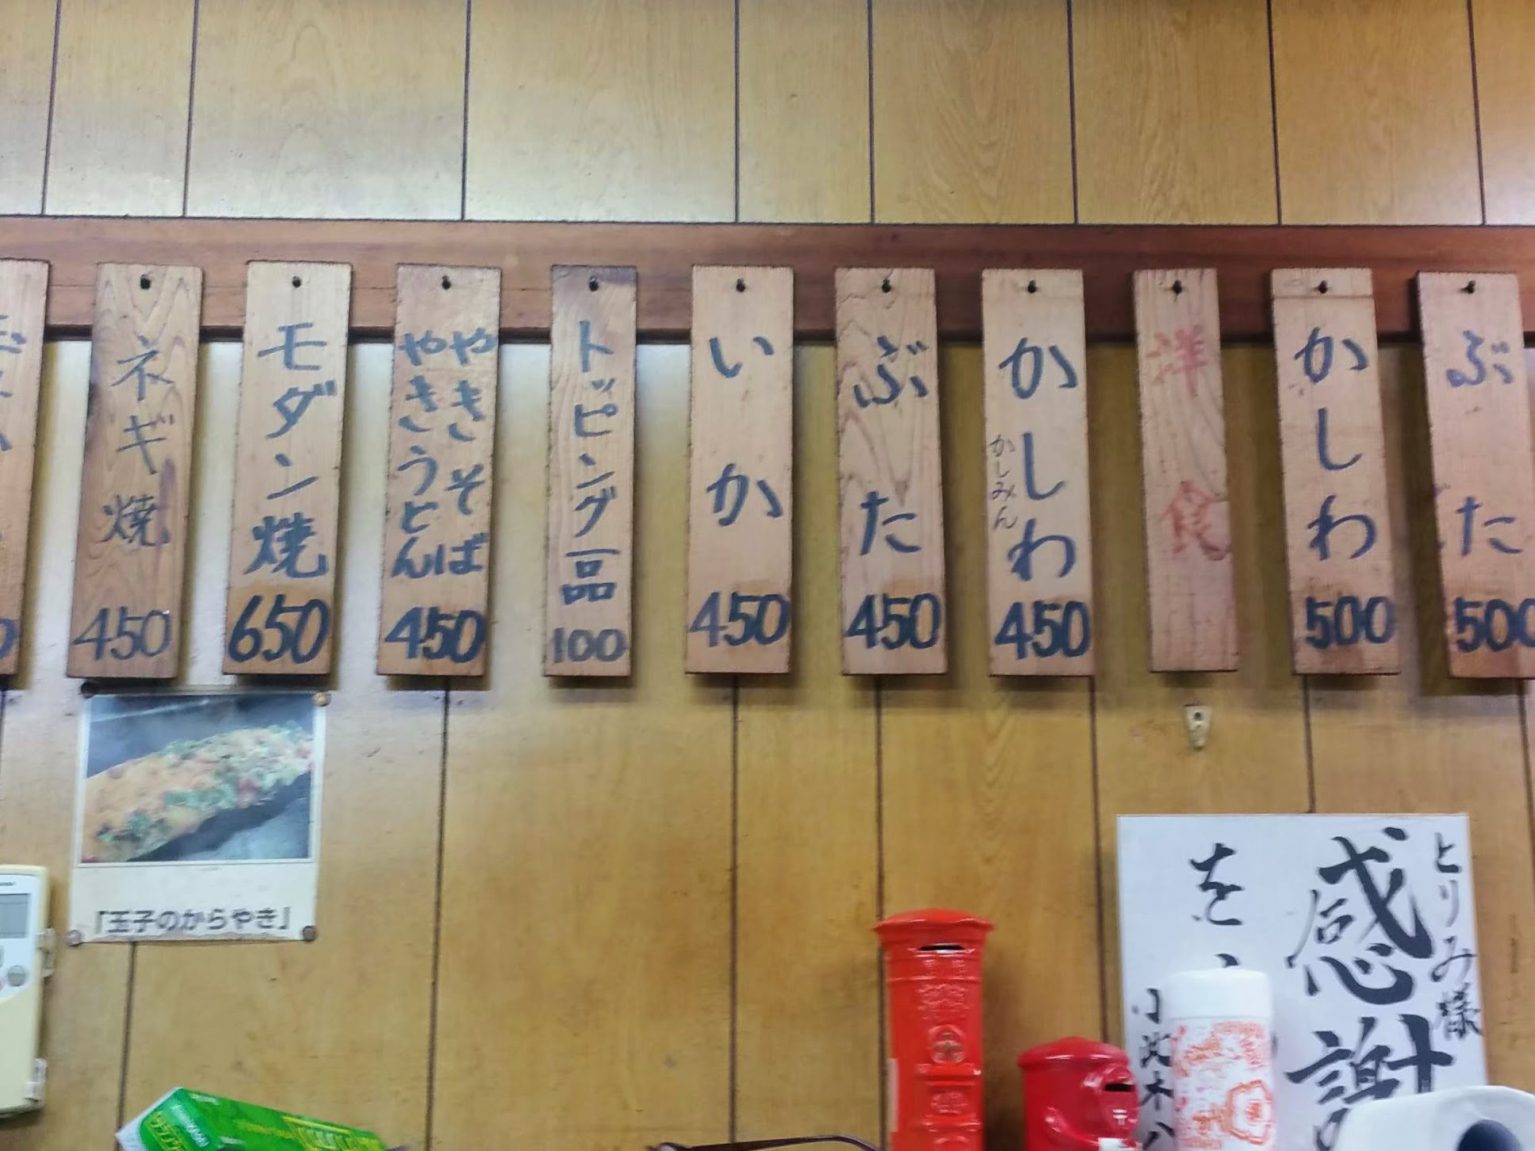 ぶた
500
かしわ
500
洋食
かしわ
かしみん
450
ぶた
450
いか
450
トッピング一品
100
やきそば
やきうどん
450
モダン焼
650
ネギ焼
450
「玉子のからやき」
とりみ様
感謝
を